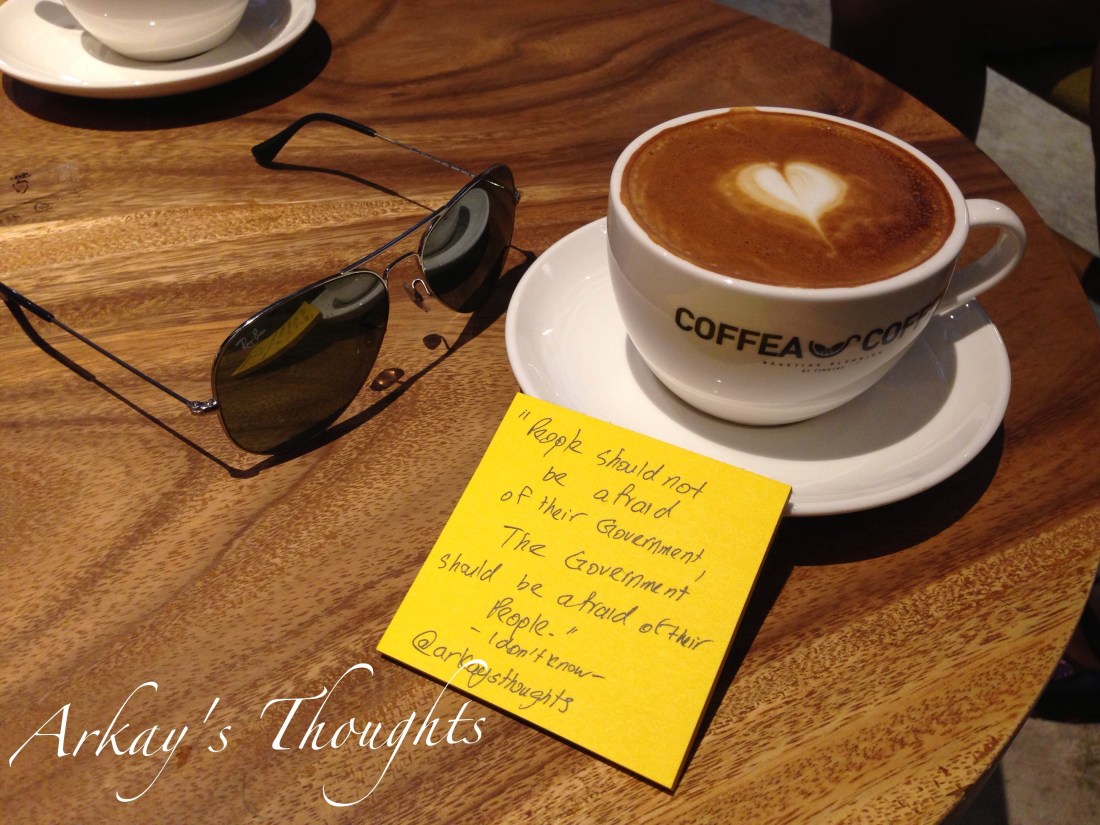 Ray-Ban
COFFEA COFF
"People should not
be afraid
of their Government,
The Government
should be afraid of their
People."
- I don't know -
@arkaysthoughts
Arkay's Thoughts